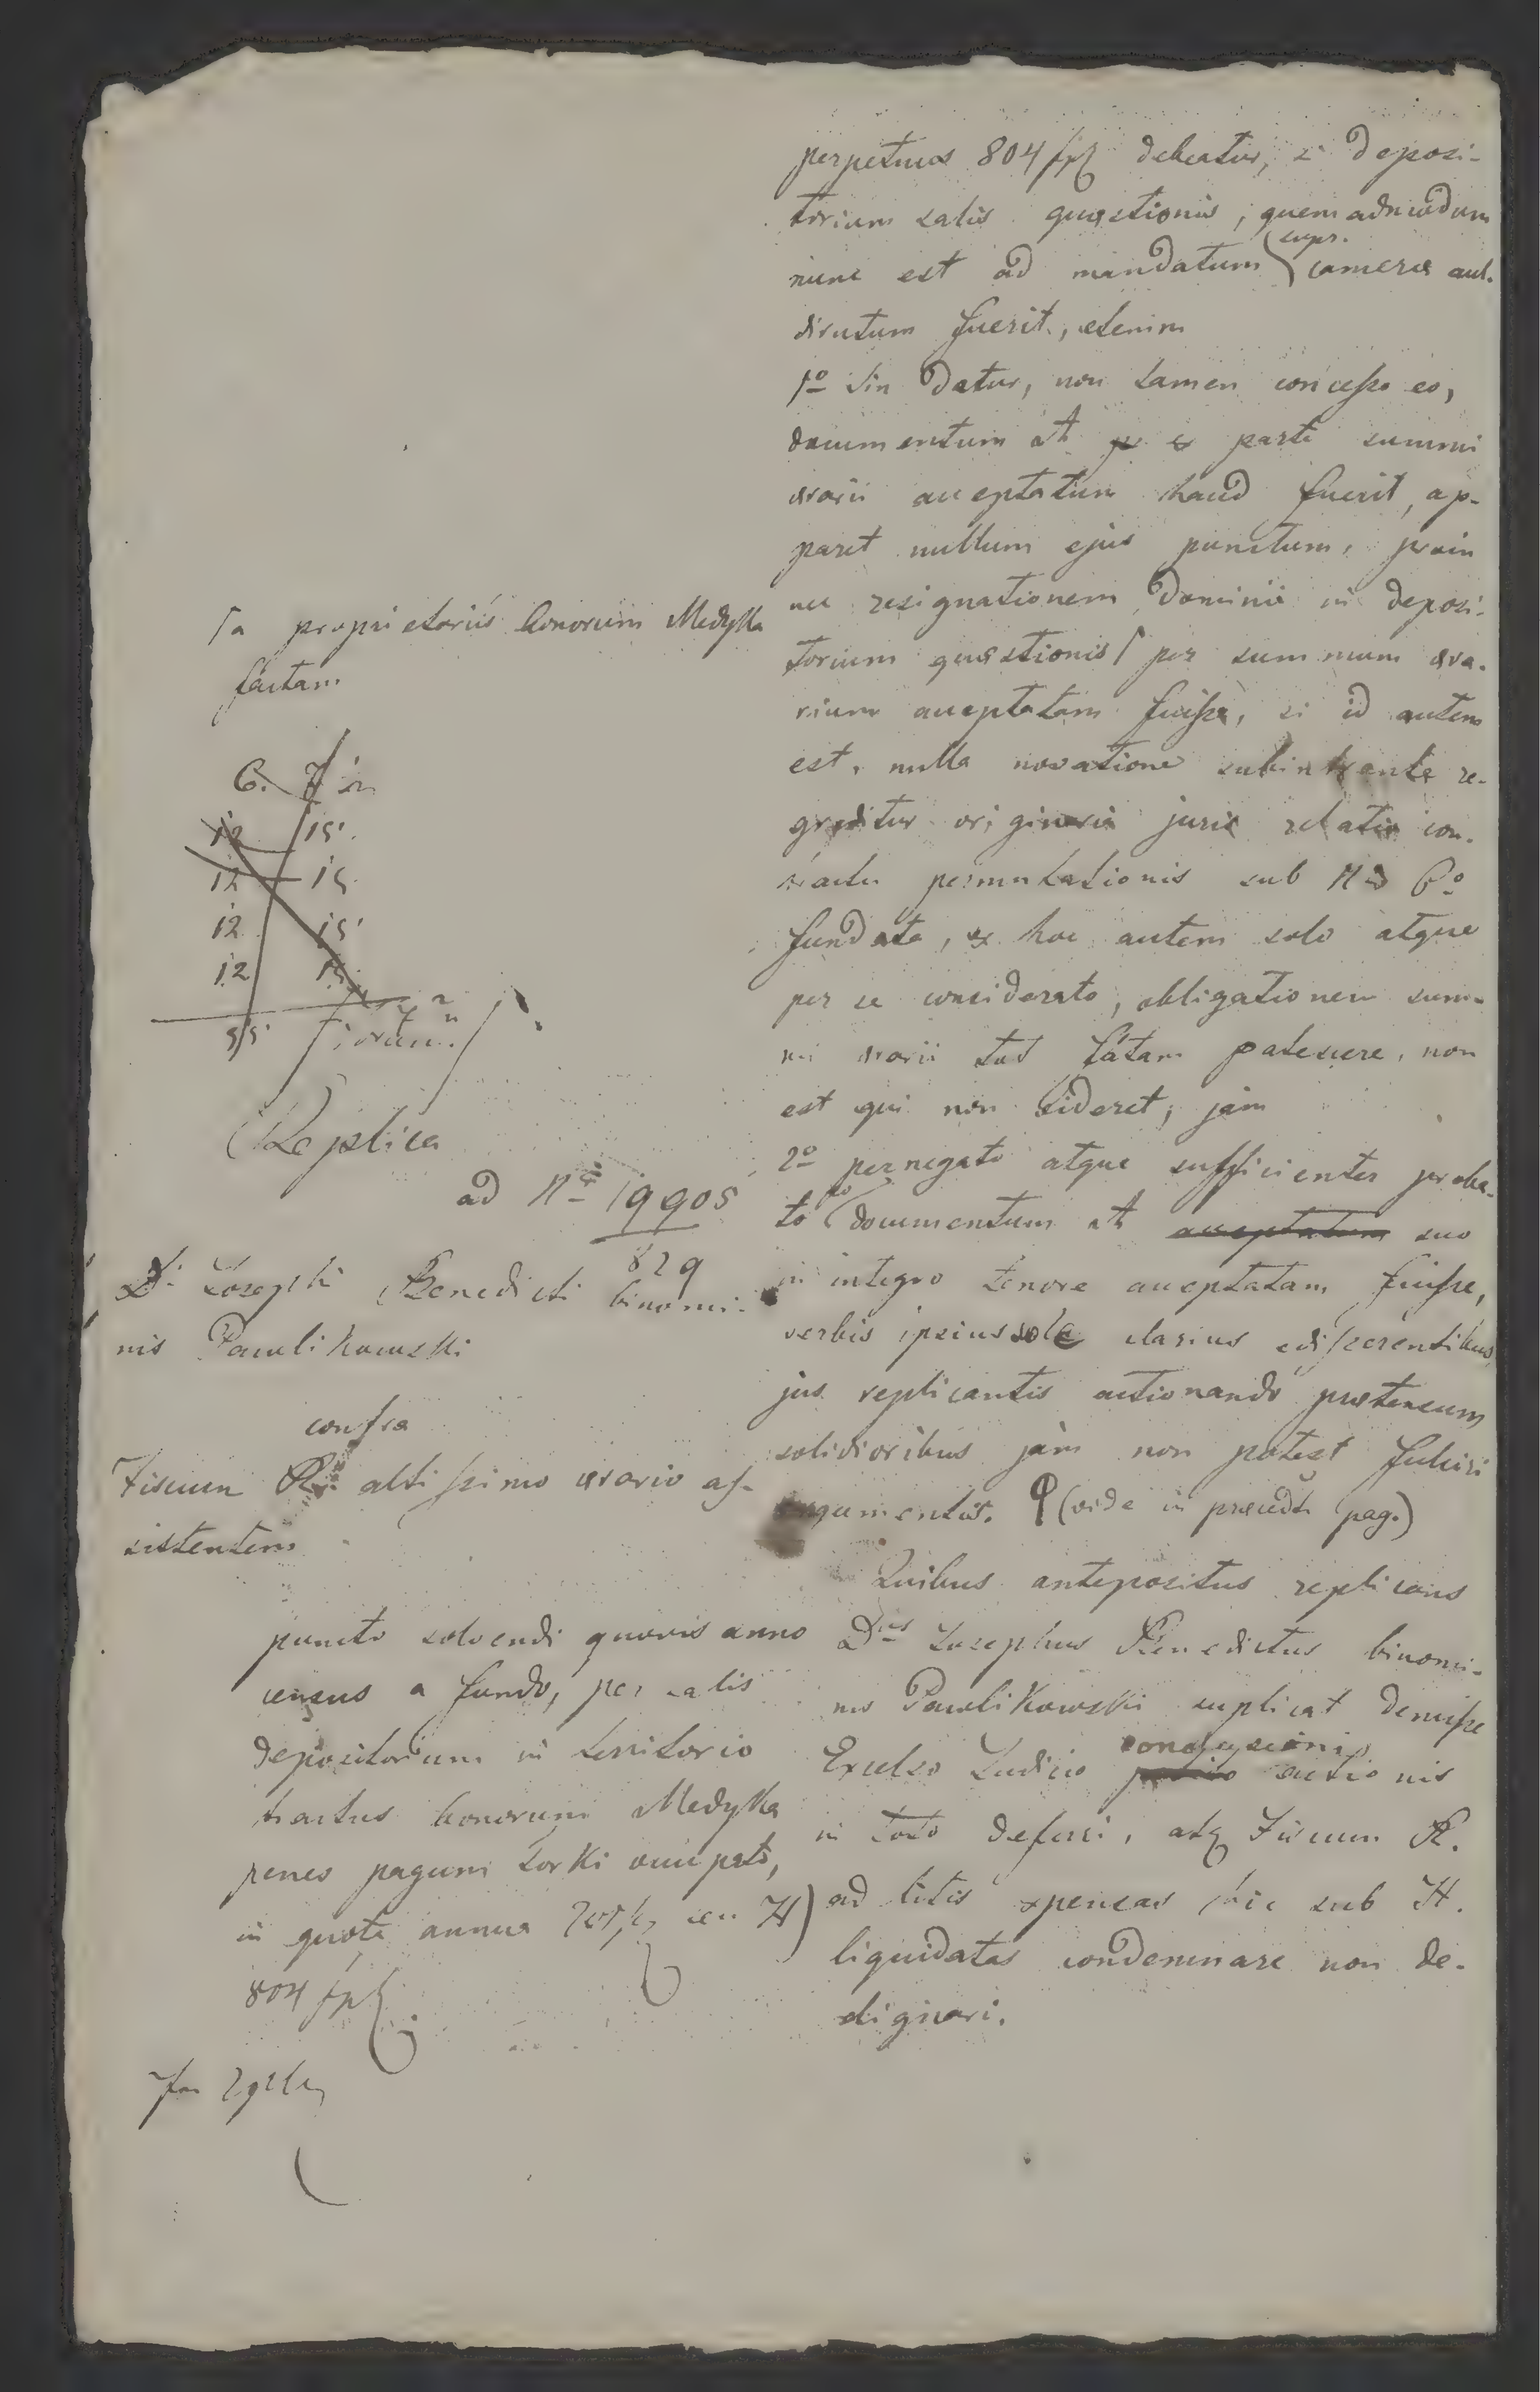 perpetuos 804 fpl debeatur, si deposi-
torium salis questionis, quemadmodum
supr.
nunc est ad mandatum camerae aul.
dirutum fuerit, etenim
1º Sin Datur, non tamen concesso eo,
documentum at parte summi
aerarii acceptatum haud fuerit, ap-
paret nullum ejus punctum, proin
nec resignationem Dominii in deposi-
torium quaestionis per summum aera-
rium acceptatam fuisse, si id autem
est, nulla novatione subintrante re-
greditur originaria juris relatio con-
tractu permutationis sub N 6º
fundata, ex hoc autem solo atque
per se considerato, obligationem sum-
mi aerarii patescere, non
est qui non videret, jam
2º pernegato atque sufficienter proba-
to documentum at acceptatum suo
in integro tenore acceptatam fuisse,
verbis ipsius sole clarius edisserentibus
jus replicantis actionando praetensum
solidioribus jam non potest fulciri
argumentis. (vide in praecedti pag.)
Quibus antepositus replicans
Dnus Josephus Benedictus binomi-
nis Pawlikowski suplicat demisse
conclusioni
Excelso Judicio actionis
in toto deferri, atq Fiscum R.
ad litis expensas hic sub H.
liquidatas condemnare non de-
dignari.
a proprietariis bonorum Medyka
factam
6.
12 15
12 15
12 15
12 15
55
Replica
ad Nr 19905
829
D. Josephi Benedicti binomi-
nis Pawlikowski
contra
Fiscum R. altissimo aerario as-
sistentem
puncto solvendi quovis anno
census a fundo, per salis
depositorium in territorio
tractus bonorum Medyka
penes pagum Torki occupato,
in quota annua seu H)
804 fpl.